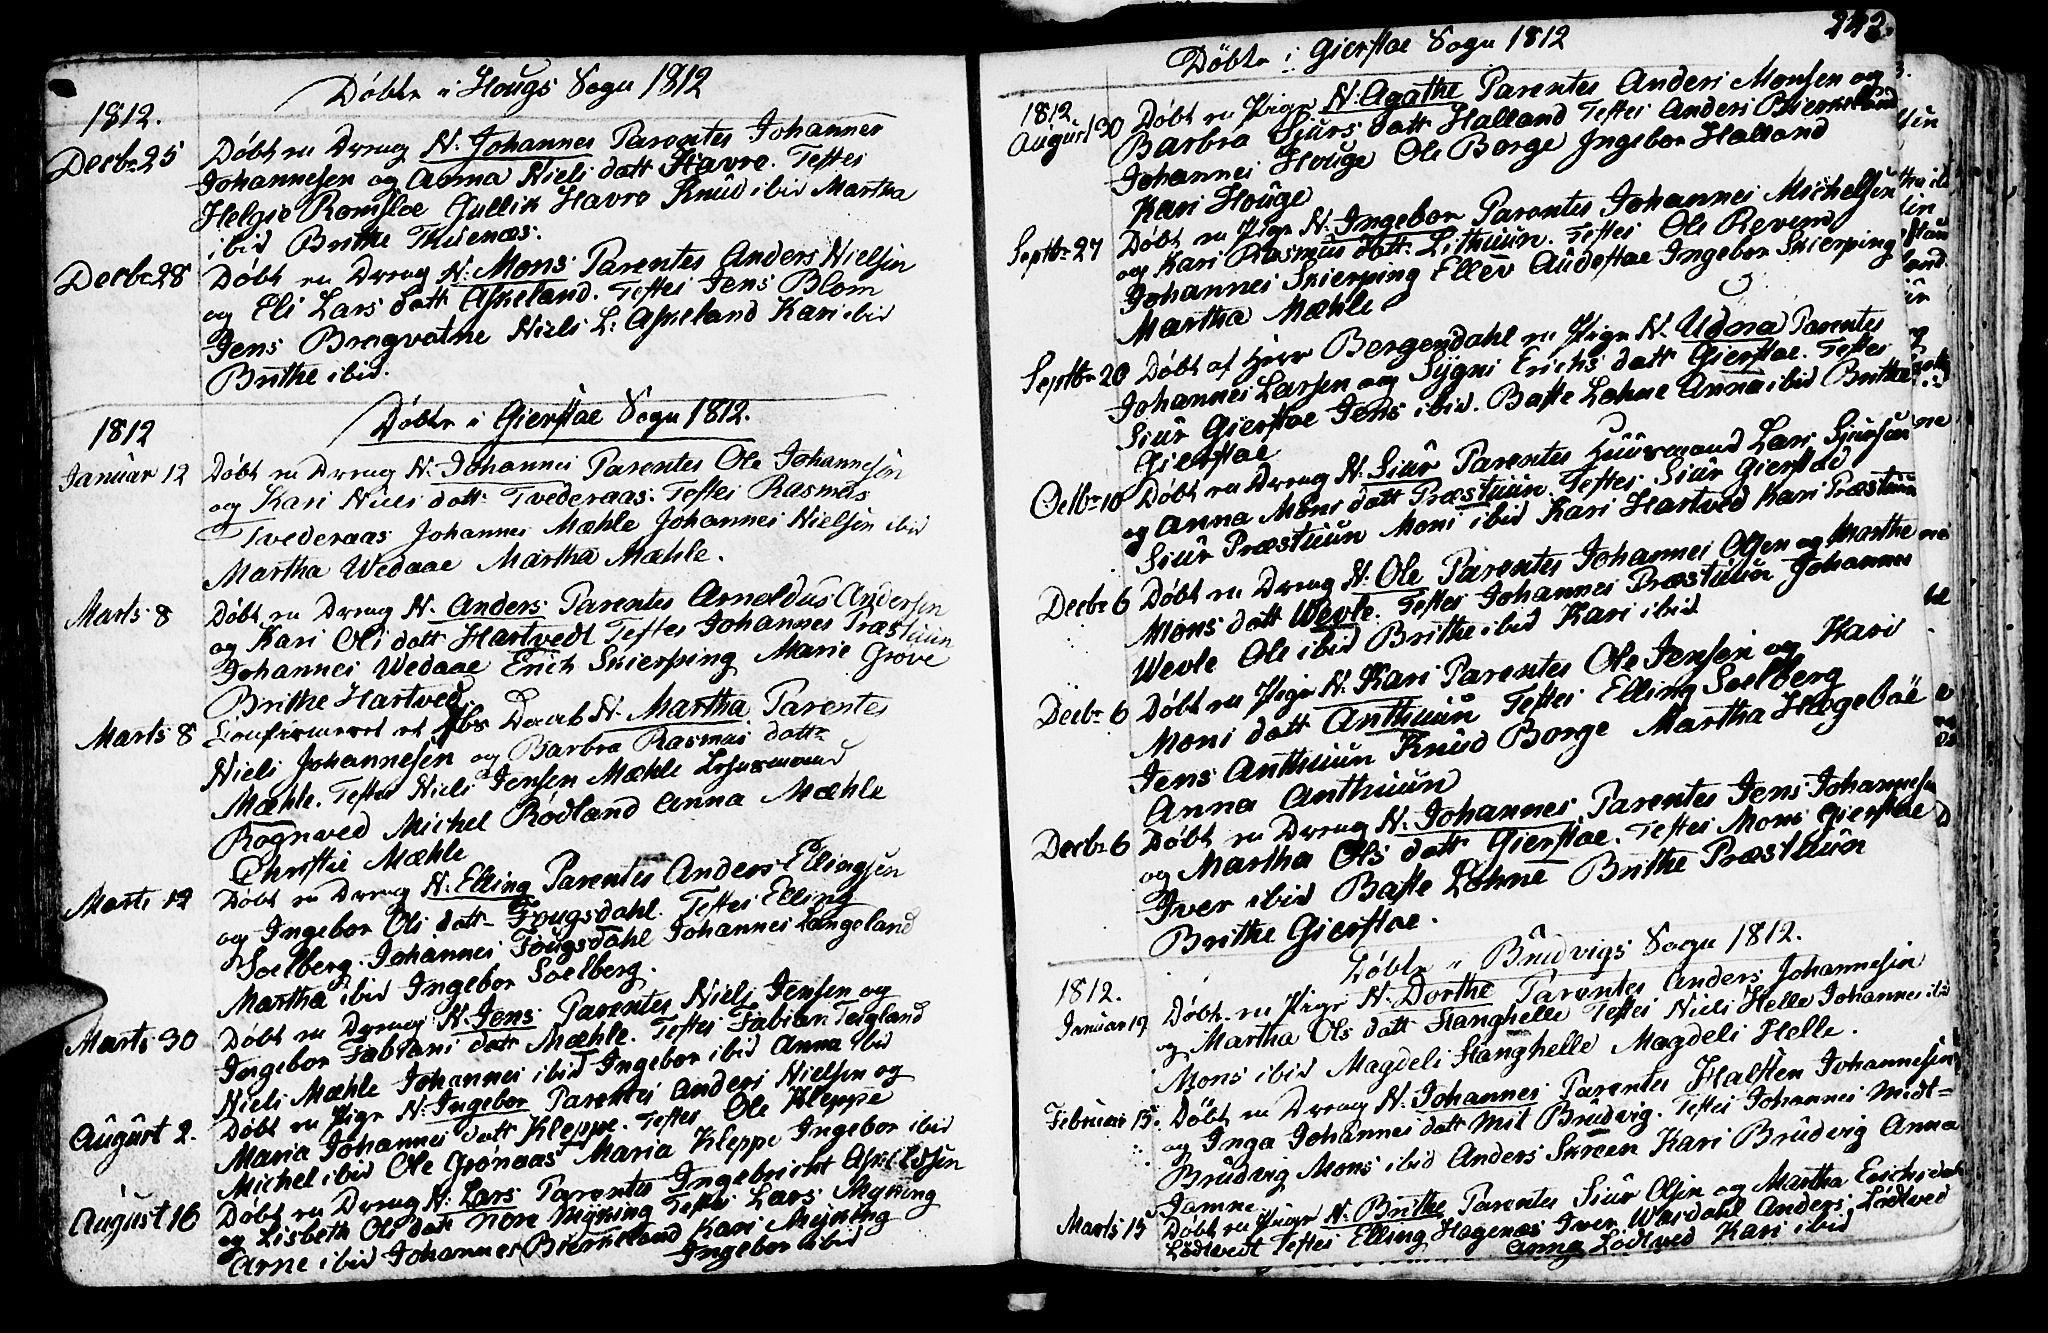 Døbte i Hougs Sogn 1812
1812.
Decbr 25 Døbt en Dreng N. Johannes Parentes Johannes
Johannesen og Anna Niels datt Havre. Testes
Helgie Romsloe Gullik Havre Knud ibid Martha
ibid Brithe Thuenæs.
Decbr 28 Døbt en Dreng N. Mons Parentes Anders Nielsen
og Eli Lars datt Askeland. Testes Jens Blom
Jens Bragvatne Niels L: Askeland Kari ibid
Brithe ibid.
Døbte i Gierstae Sogn 1812.
1812
Januar 12 Døbt en Dreng N. Johannes Parentes Ole Johannesen
og Kari Niels datt Tvederaas. Testes Rasmus
Tvederaas Johannes Mæhle Johannes Nielsen ibid
Martha Wedaae Martha Mæhle.
Marts 8 Døbt en Dreng N. Anders Parentes Arnoldus Andersen
og Kari Ols datt Hartvedt Testes Johannes Præstuun
Johannes Wedaae Erich Skierping Marie Grove
Brithe Hartved.
Marts 8 Confirmeret et Daab N. Martha Parentes
Niels Johannesen og Barbro Rasmus datt
Mæhle. Testes Niels Jensen Mæhle
Rognved Michel Rødland Anna Mæhle
Christie Mæhle
Marts 12 Døbt en Dreng N. Elling Parentes Anders Ellingsen
og Ingebor Ols datt Fougsdahl. Testes Elling
Soelberg. Johannes Fougsdahl Johannes Langeland
Martha ibid Ingebor Soelberg.
Marts 30 Døbt en Dreng N. Jens Parentes Niels Jensen og
Ingebor Fabians datt Mæhle. Testes Fabian Teigland
Niels Mæhle Johannes ibid Ingebor ibid Anna ibid
August 2. Døbt en Pige N. Ingebor Parentes Anders Nielsen og
Maria Johannes datt Kleppe. Testes Ole Kleppe
Michel ibid Ole Grønaas Maria Kleppe Ingebor ibid
August 16 Døbt en Dreng N. Lars Parentes Ingebricht Askeldsen
og Lisbeth Ols datt Nore Myking Testes Lars Myking
Arne ibid Johannes Bierkeland Kari Myking
Ingebor ibid
242.
Døbte i Gierstae Sogn 1812
1812.
August 30 Døbt en Pige N. Agathe Parentes Anders Monsen og
Barbro Siurs datt Halland Testes Anders Bierkeland
Johannes Houge Ole Borge Ingebor Halland
Kari Houge
Septbr 27 Døbt en Pige N. Ingebor Parentes Johannes Michelsen
og Kari Rasmus datt Lithuun. Testes Ole Reveim
Johannes Skierping Ellev Audestae Ingebor Skierping
Martha Mæhle
Septbr 20 Døbt af Herr Bergendahl en Pige N. Udna Parentes
Johannes Larsen og Sygni Erichs datt Gierstae. Testes
Siur Gierstae Jens ibid. Baste Lohne Anna ibid Brithe
Gierstae
Octbr 10 Døbt en Dreng N. Siur Parentes Huusmand Lars Siursen
og Anna Mons datt Præstuun. Testes Siur Gierstae
Siur Præstuun Mons ibid Kari Hartved Kari Præstuun
Decbr 6 Døbt en Dreng N. Ole Parentes Johannes Olsen og Marthe
Mons datt Wevle. Testes Johannes Præstuun Johannes
Wevle Ole ibid Brithe ibid Kari ibid
Decbr 6 Døbt en Pige N. Kari Parentes Ole Jensen og Kari
Mons datt Anthuun Testes Elling Soelberg
Jens Anthuun Knud Borge Martha Hogebøe
Anna Anthuun
Decbr 6 Døbt en Dreng N. Johannes Parentes Jens Johannesen
og Martha Ols datt Gierstae. Testes Mons Gierstae
Iver ibid Baste Lohne Brithe Præstuun
Brithe Gierstae.
Døbte i Brudvigs Sogn 1812.
1812.
Januar 19 Døbt en Pige N. Dorthe Parentes Anders Johannesen
og Martha Ols datt Stanghelle Testes Niels Helle Johannes ibid
Mons ibid Magdeli Stanghelle Magdeli Helle.
Februar 15. Døbt en Dreng N. Johannes Parentes Halsten Johannesen
og Inga Johannes datt Mit Brudvig. Testes Johannes Midt-
Brudvig Mons ibid Anders Skreen Kari Brudvig Anna
Jamne
Marts 15 Døbt en Pige N. Brithe Parentes Siur Olsen og Martha Erichs datt
Lødtvedt Testes Elling Hagenæs Iver Wasdahl Anders Lødtved
Anna Lødtved Kari ibid